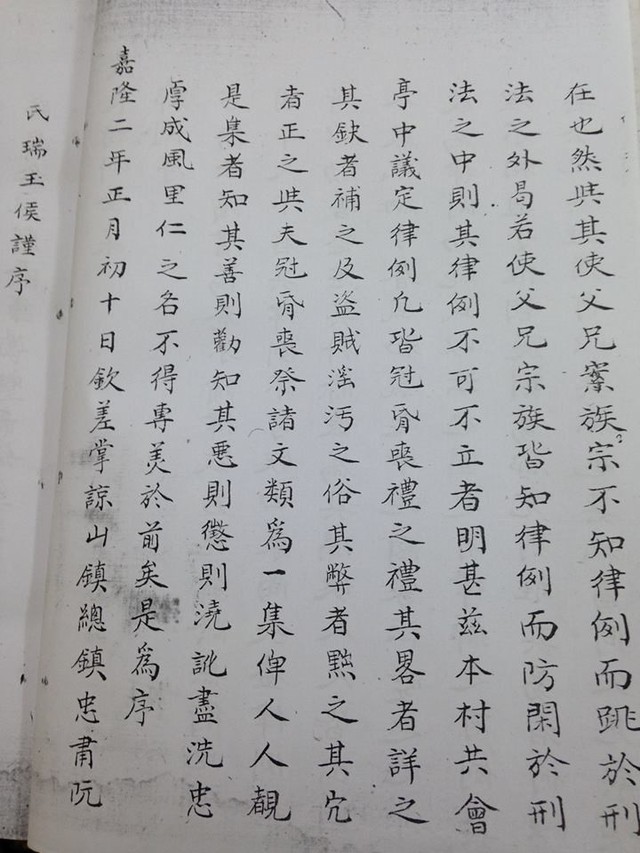 在也然與其使父兄寮族宗不知律例而跳於刑
法之外曷若使父兄宗族皆知律例而防閑於刑
法之中則其律例不可不立者明甚兹本村共會
亭中議定律例凢皆冠昏喪禮之禮其畧者詳之
其缺者補之及盗賊滛汚之俗其弊者黙之其冗
者正之與夫冠昏喪祭諸文類爲一集俾人人覩
是集者知其善則勸知其悪則懲則澆訛盡洗忠
厚成風里仁之名不得專羙於前矣是爲序
嘉隆二年正月初十日欽差掌諒山鎮總鎮忠肅阮
氏瑞玉侯謹序